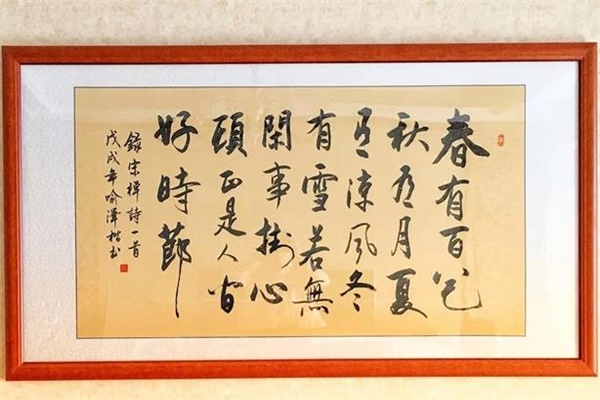 春有百花
秋有月夏
有涼風冬
有雪若無
閑事掛心
頭正是人間
好時節
錄宗禪詩一首
戊戌年喻澤楷书